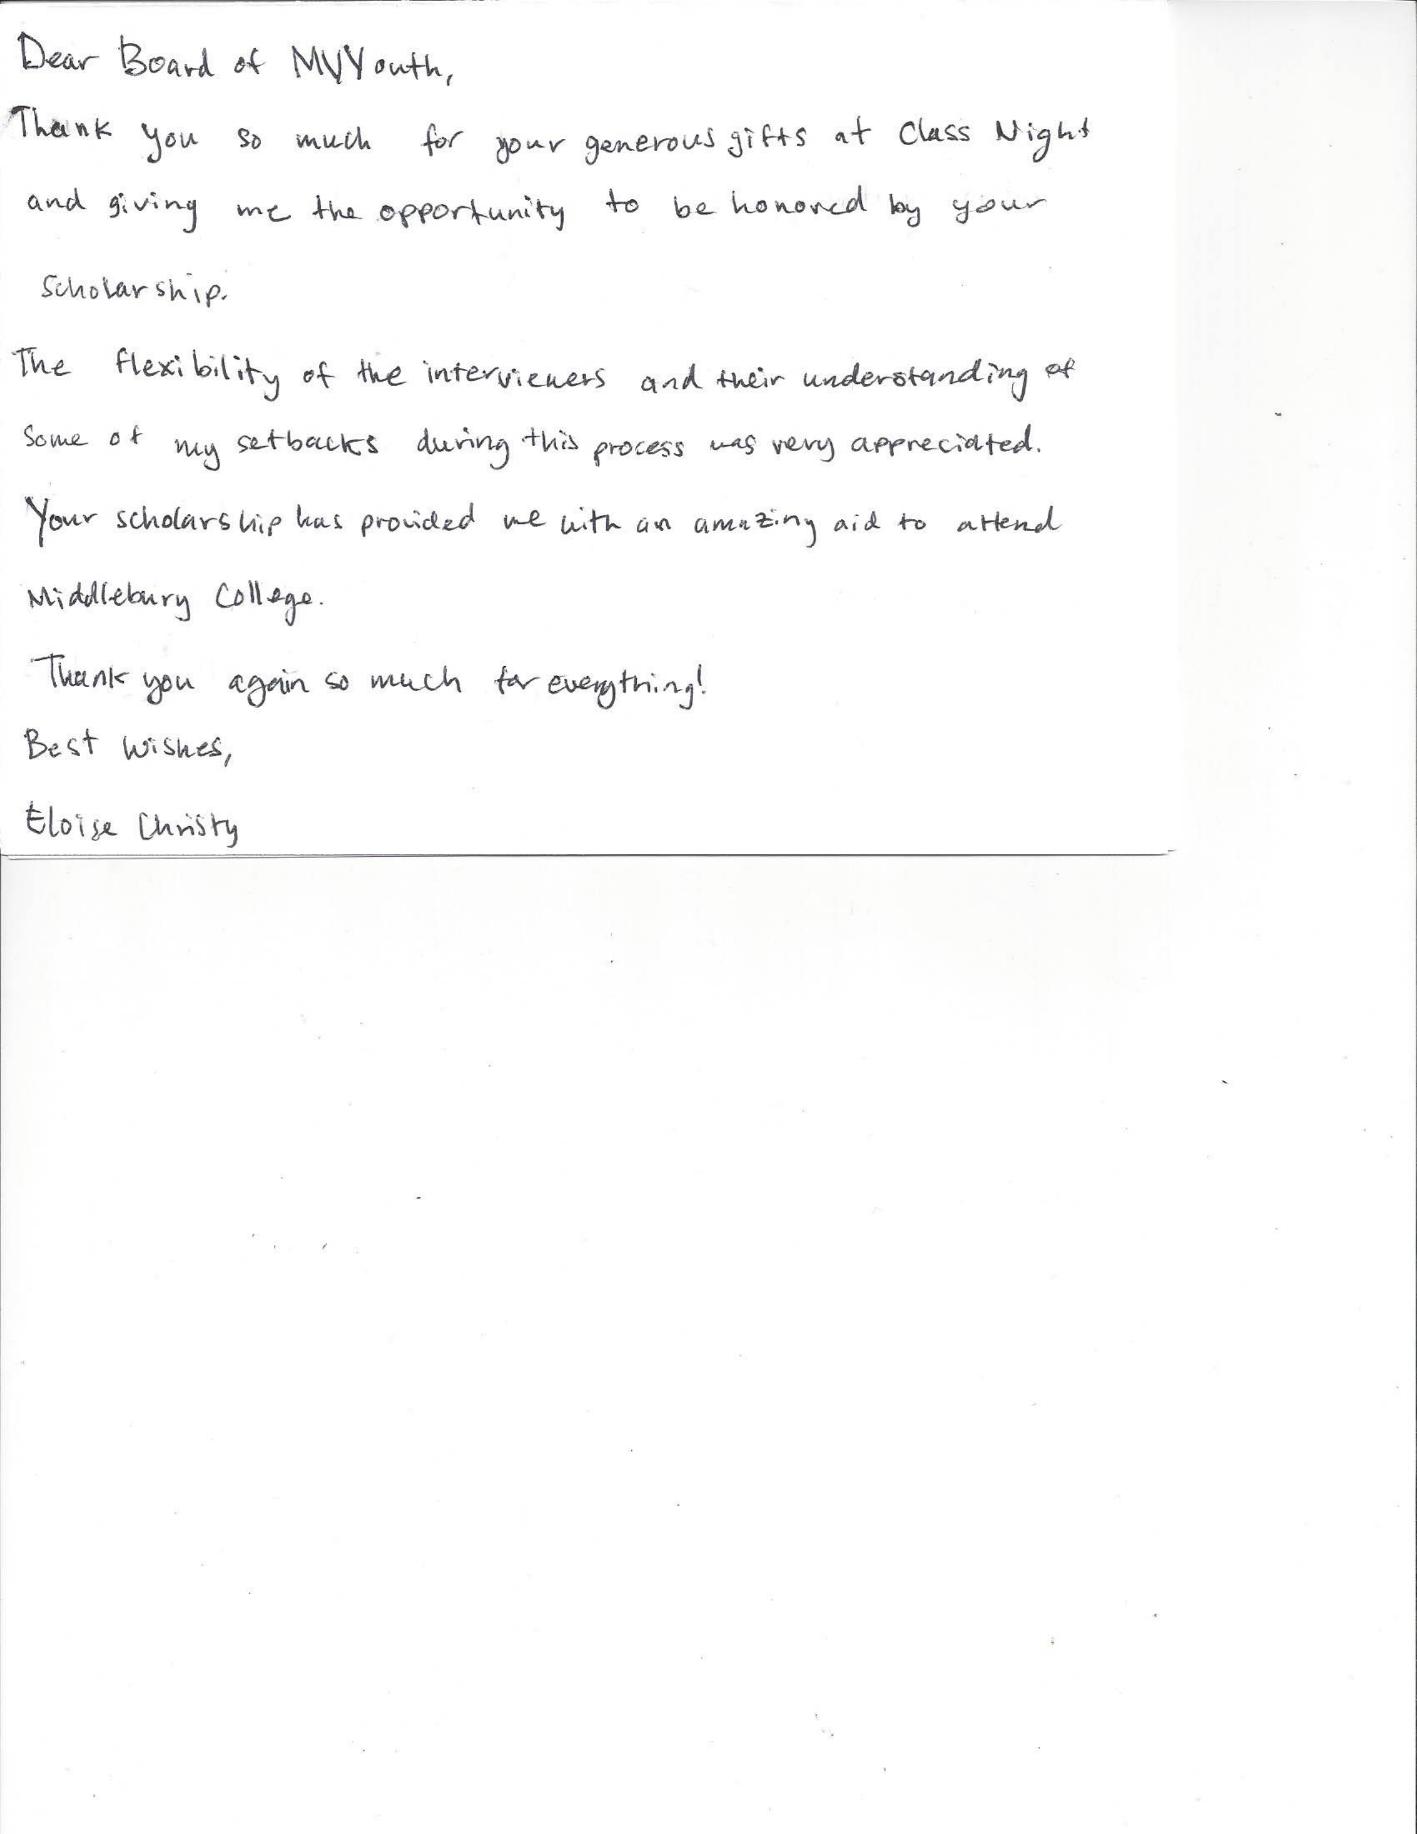 Dear Board of MVYouth,
Thank you so much for your generous gifts at Class Night
and giving me the opportunity to be honored by your
scholarship.
The flexibility of the interviewers and their understanding of
some of my setbacks during this process was very appreciated.
Your scholarship has provided me with an amazing aid to attend
Middlebury College.
Thank you again so much for everything!
Best Wishes,
Eloise Christy